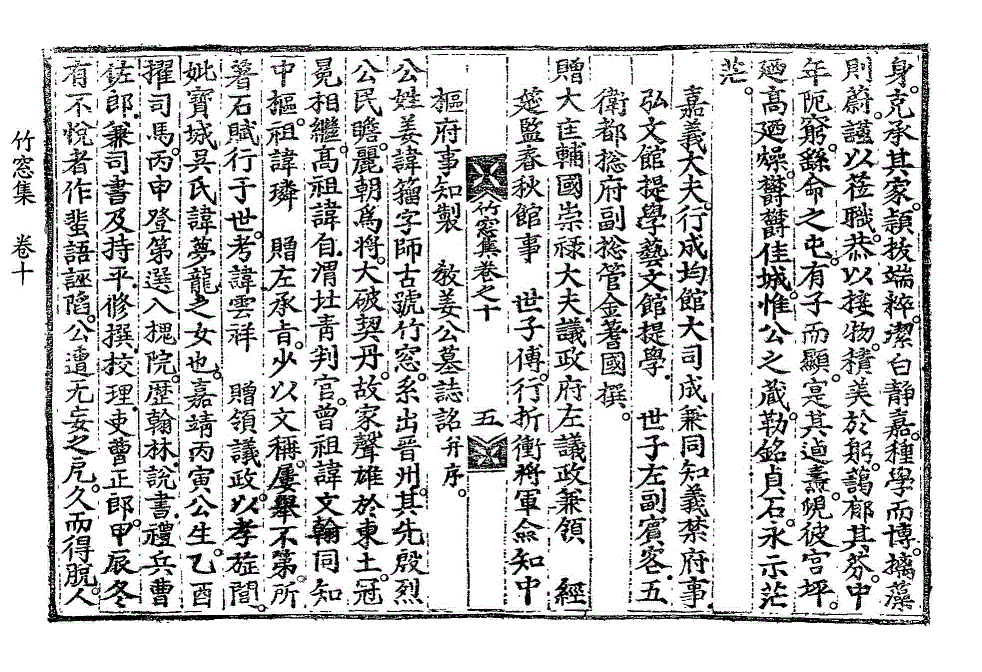 身。克承其家。穎拔端粹。潔白靜嘉。種學而博。摛藻
則蔚。謹以莅職。恭以接物。積美於躬。藹郁其芬。中
年阨窮。繇命之屯。有子而顯。寔其遹燾。睨彼宮坪。
廼高廼燥。欝欝佳城。惟公之藏。勒銘貞石。永示茫
茫。
嘉義大夫。行成均館大司成兼同知義禁府事
弘文館提學藝文館提學 世子左副賓客。五
衛都揔府副揔管金蓍國 撰。
贈大匡輔國崇祿大夫議政府左議政兼領 經
筵監春秋館事 世子傅行折衝將軍僉知中
竹窓集卷之十 五
樞府事知製 敎姜公墓誌銘 幷序。
公姓姜諱籀字師古號竹窓。系出晉州。其先殷烈
公民瞻。麗朝爲將。大破契丹。故家聲雄於東土。冠
冕相繼。高祖諱自渭壯靑判官。曾祖諱文翰同知
中樞。祖諱璘 贈左承旨。少以文稱。屢擧不第。所
著石賦行于世。考諱雲祥 贈領議政。以孝旌閭。
妣寶城吳氏諱夢龍之女也。嘉靖丙寅公生。乙酉
擢司馬。丙申登第。選入槐院。歷翰林,說書,禮兵曹
佐郞。兼司書及持平,修撰,校理,吏曹正郞。甲辰冬
有不悅者作蜚語誣陷。公遭无妄之厄。久而得脫。人
竹窓集 卷十